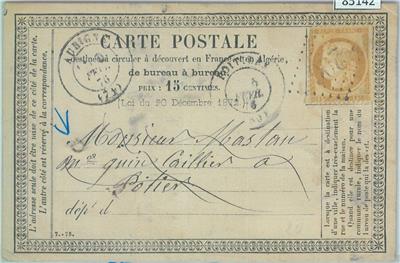 85142
CARTE POSTALE
Destinée à circuler à découvert en France et en Algérie,
de bureau à bureau.
PRIX : 15 CENTIMES.
(Loi du 20 Décembre 1872.)
AUBIGN
FEVR.
Monsieur
quincaillier a
dépt d
L'adresse seule doit être mise de ce côté de la carte.
L'autre côté est réservé à la correspondance.
Lorsque la carte est à destination
d'une ville, indiquer très-exactement
la rue et le numéro de la maison.
Quand elle est destinée pour une
commune rurale, indiquer le nom du
Bureau de poste qui la dessert.
7.-75.